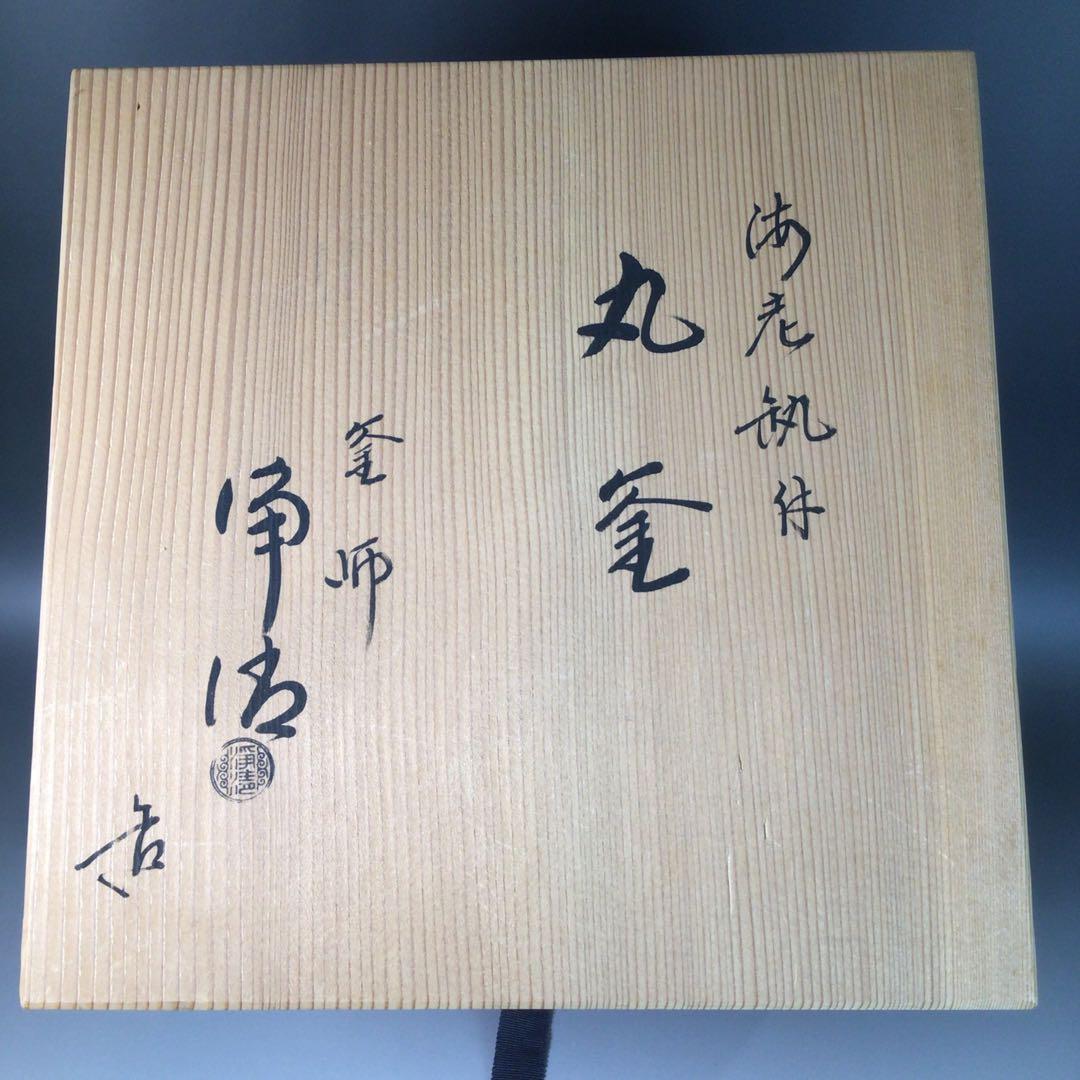 海老釻付
丸釜
釜師
浄清
淨清
造